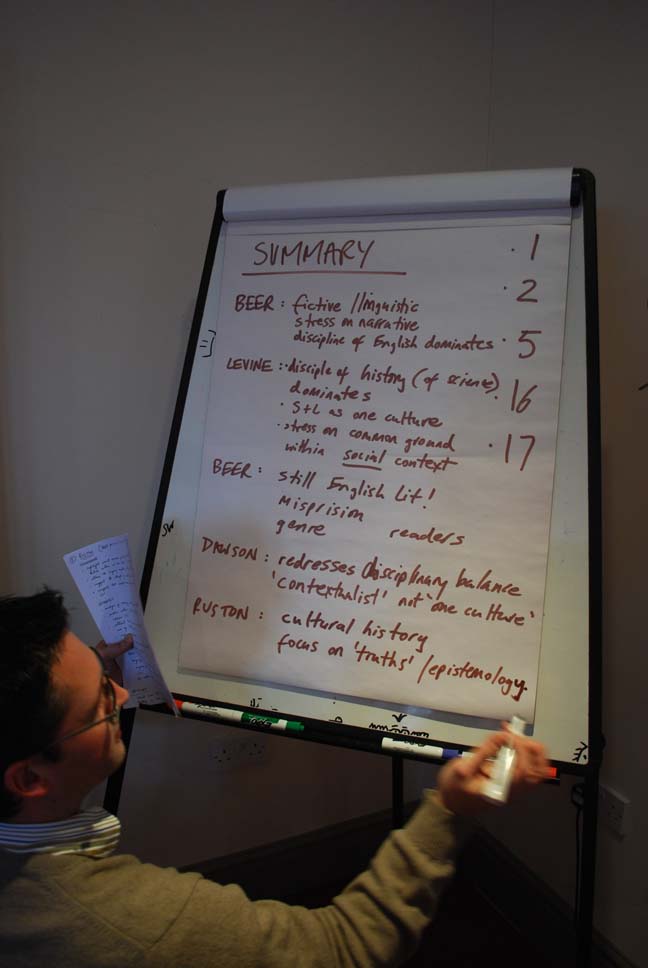 SUMMARY
· 1
· 2
BEER: fictive/linguistic
stress on narrative
discipline of English dominates · 5
LEVINE: · disciple of history (of science)
dominates
· 16
· S+L as one culture
· stress on common ground
within social context
· 17
BEER: still English Lit!
Misprision
genre readers
DAWSON: redresses disciplinary balance
'contextualist' not 'one culture'
RUSTON: cultural history
focus on 'truths'/epistemology.